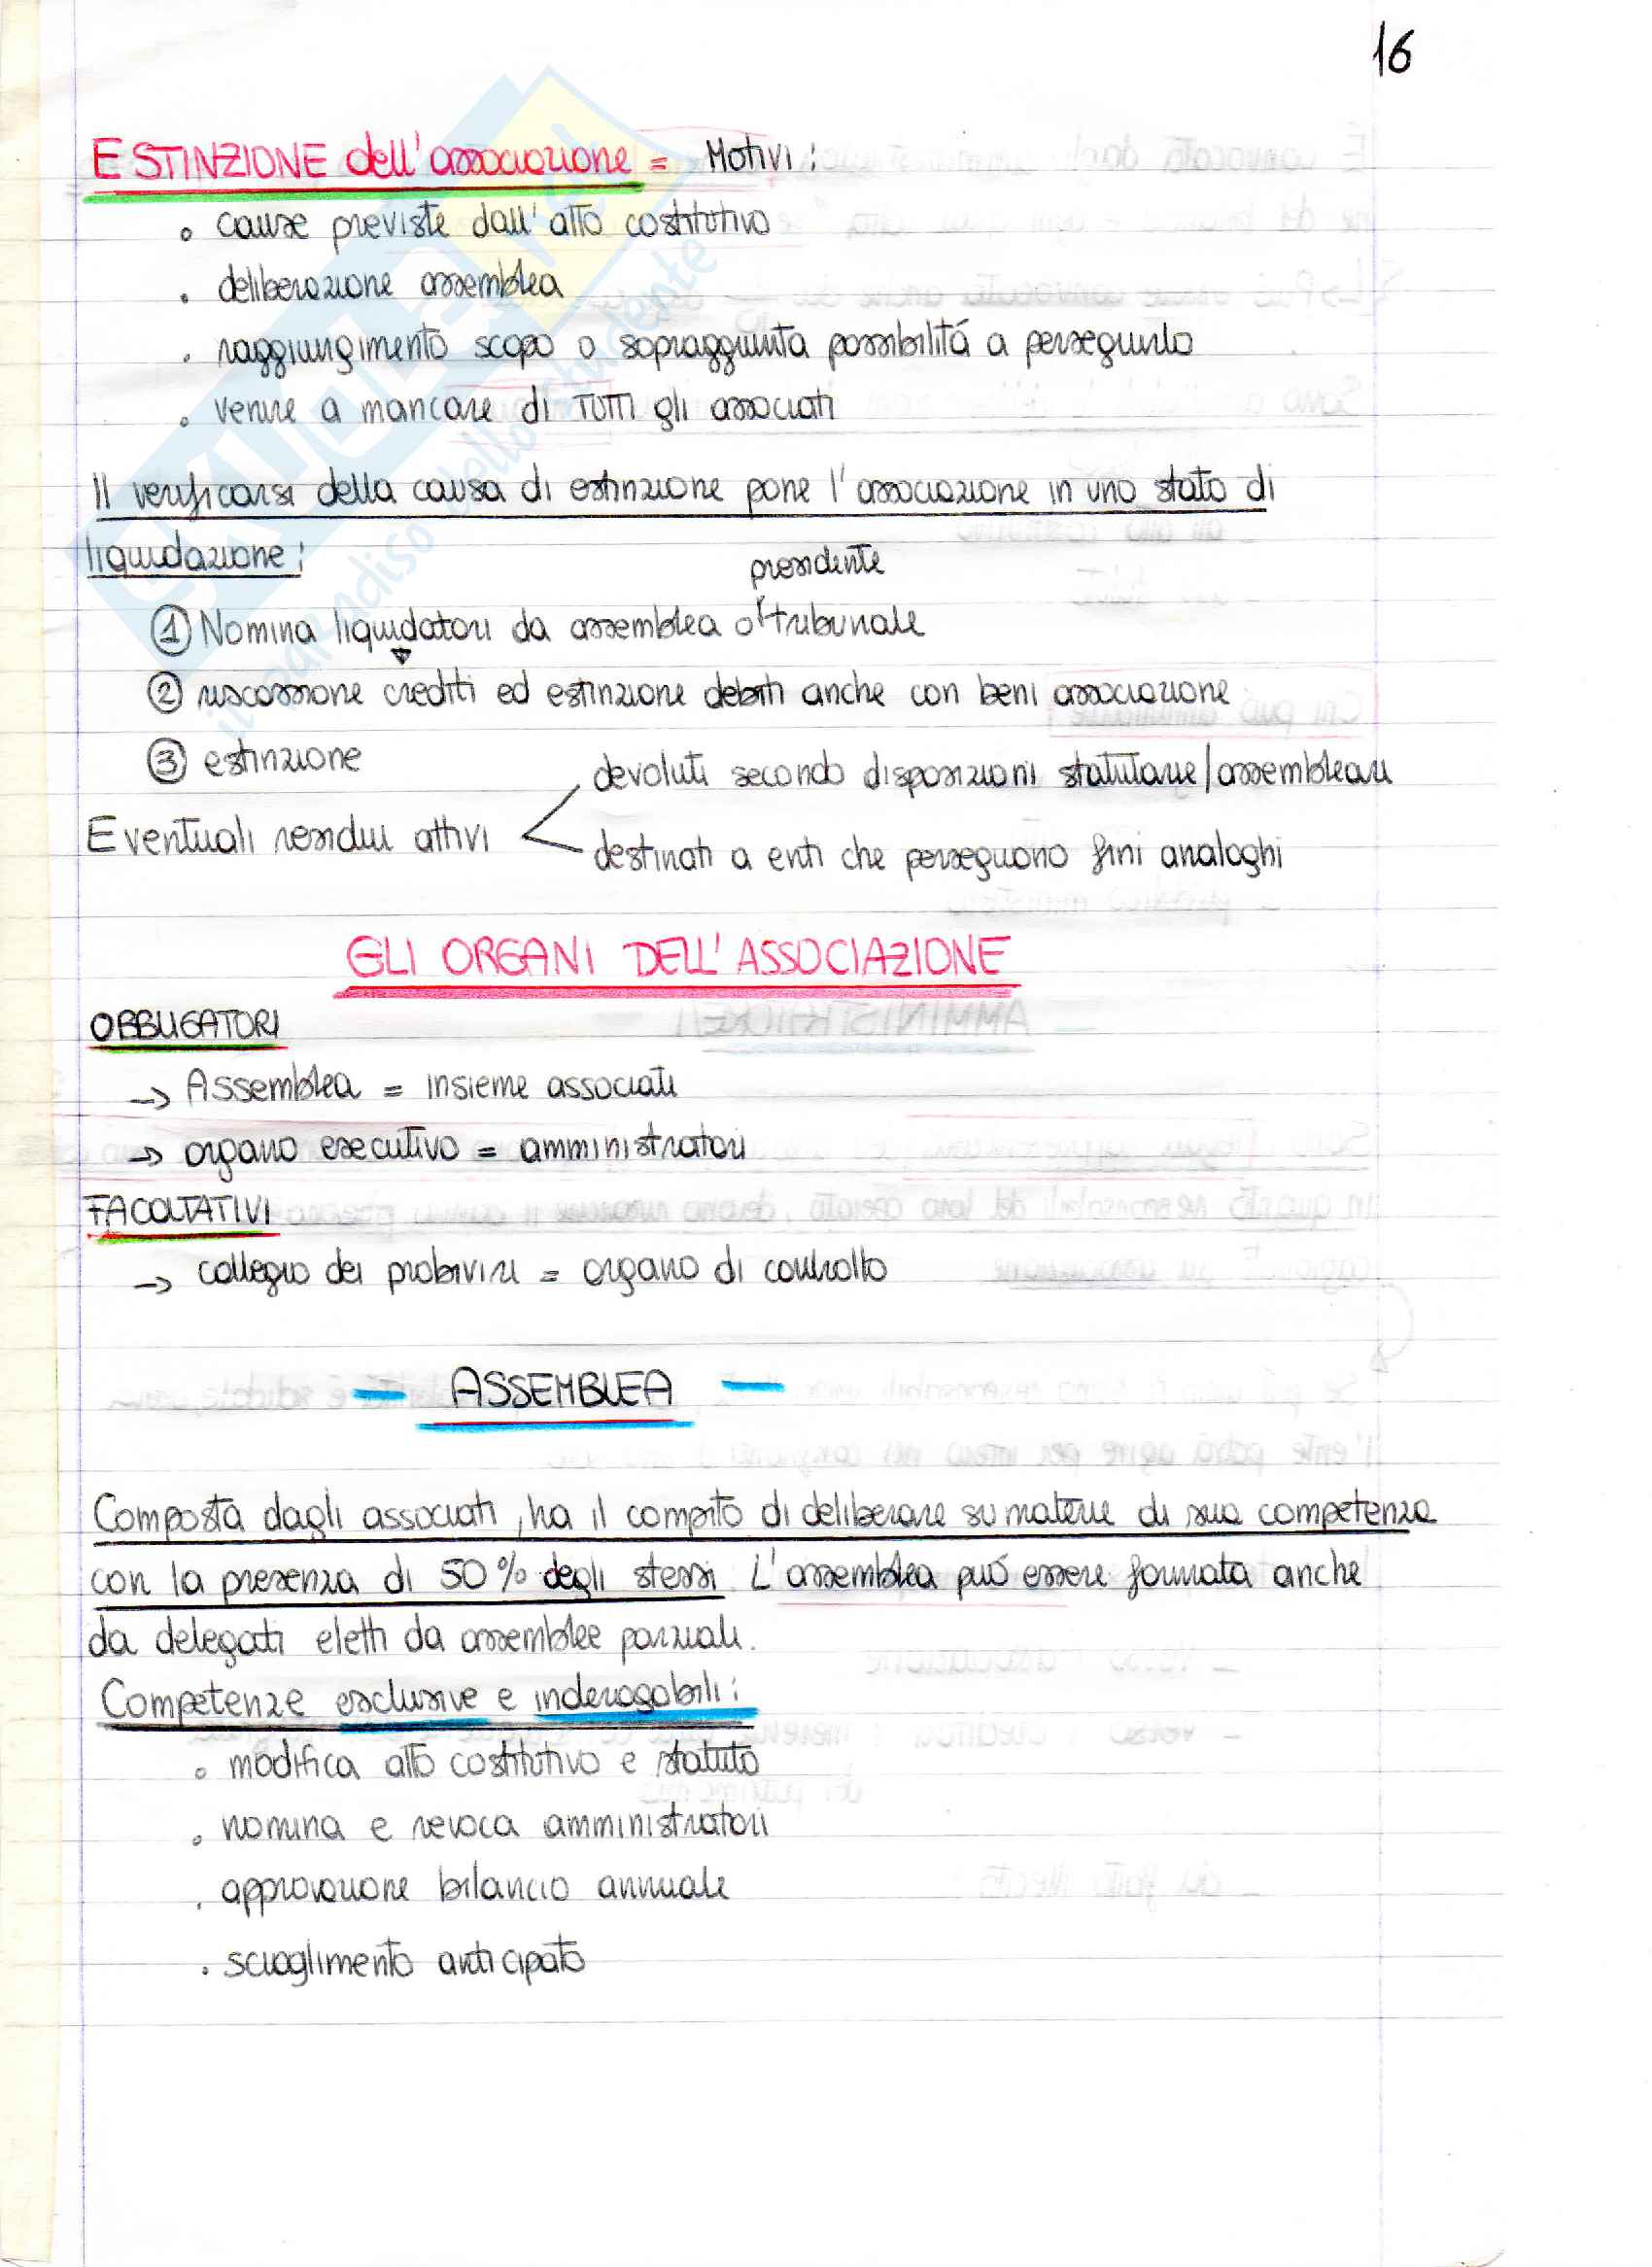 16
ESTINZIONE dell'associazione = Motivi:
• cause previste dall'atto costitutivo
• deliberazione assemblea
• raggiungimento scopo o sopraggiunta possibilitá a perseguirlo
• venire a mancare di TUTTI gli associati
Il verificarsi della causa di estinzione pone l'associazione in uno stato di
liquidazione:
presidente
① Nomina liquidatori da assemblea o tribunale
② riscossione crediti ed estinzione debiti anche con beni associazione
③ estinzione
devoluti secondo disposizioni statutarie/assembleari
Eventuali residui attivi
destinati a enti che perseguono fini analoghi
GLI ORGANI DELL'ASSOCIAZIONE
OBBLIGATORI
→ Assemblea = insieme associati
→ organo esecutivo = amministratori
FACOLTATIVI
→ collegio dei probiviri = organo di controllo
— ASSEMBLEA —
Composta dagli associati, ha il compito di deliberare su materie di sua competenza
con la presenza di 50% degli stessi. L'assemblea puó essere formata anche
da delegati eletti da assemblee parziali.
Competenze esclusive e inderogabili:
• modifica atto costitutivo e statuto
• nomina e revoca amministratori
• approvazione bilancio annuale
• scioglimento anticipato